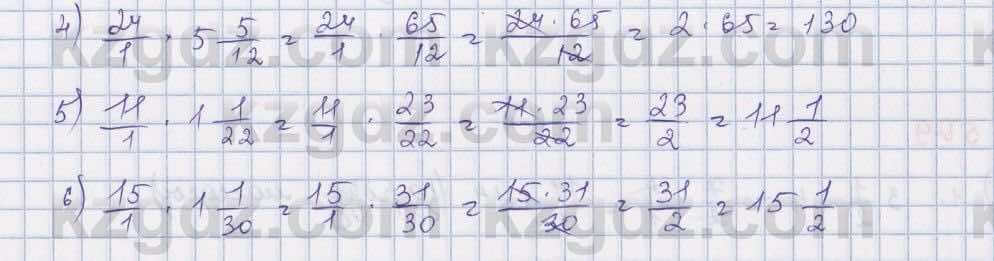 4) 24/1 · 5 5/12 = 24/1 · 65/12 = 24 · 65/12 = 2 · 65 = 130
5) 11/1 · 1 1/22 = 11/1 · 23/22 = 11 · 23/22 = 23/2 = 11 1/2
6) 15/1 · 1 1/30 = 15/1 · 31/30 = 15 · 31/30 = 31/2 = 15 1/2
kzgdz.com